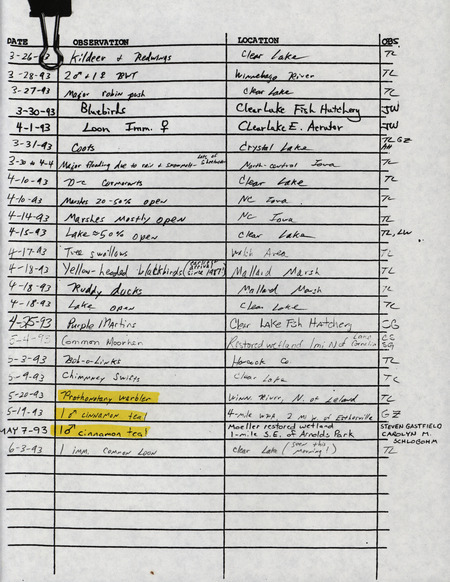 DATE OBSERVATION LOCATION OBS
3-26-93 Kildeer & Redwings Clear Lake TL
3-28-93 2♂ + 1♀ BWT Winnebago River TL
3-27-93 Major robin push Clear Lake TL
3-30-93 Bluebirds Clear Lake Fish Hatchery JW
4-1-93 Loon Imm. ♀ Clear Lake E. Aerator JW
3-31-93 Coots Crystal Lake TL GZ
3-30 to 4-4 Major flooding due to rain & snowmelt - lots of North-central Iowa TL
4-10-93 D-c Cormorants Clear Lake TL
4-10-93 Marshes 20-50% open NC Iowa TL
4-14-93 Marshes Mostly open NC Iowa TL
4-15-93 Lake ≈ 50% open Clear Lake TL, LW
4-17-93 Tree swallows Area TL
4-18-93 Yellow-headed blackbirds (earliest arrival since 1987!) Mallard Marsh TL
4-18-93 Ruddy ducks Mallard Marsh TL
4-18-93 Lake open Clear Lake TL
4-25-93 Purple Martins Clear Lake Fish Hatchery CG
5-4-93 Common Moorhen Restored wetland 1 mi N of Lake Cornelia
5-3-93 Bob-o-Links Hancock Co. TL
5-9-93 Chimney Swifts Clear Lake TL
5-20-93 Prothonotary warbler Winn. River, N. of Leland TL
5-19-93 1♂ cinnamon teal 4-mile WPA, 2 mi W. of Estherville GZ
MAY 7-93 1♂ cinnamon teal Moeller restored wetland STEVEN GASTFIELD
1-mile S.E. of Arnolds Park CAROLYN M.
SCHLOBOHM
6-3-93 1 imm. Common Loon Clear Lake (seen this morning!) TL